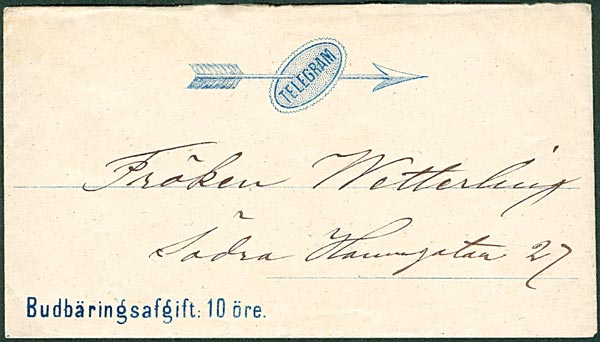 TELEGRAM
Fröken Wetterling
Södra Hamngatan 27
Budbäringsafgift: 10 öre.